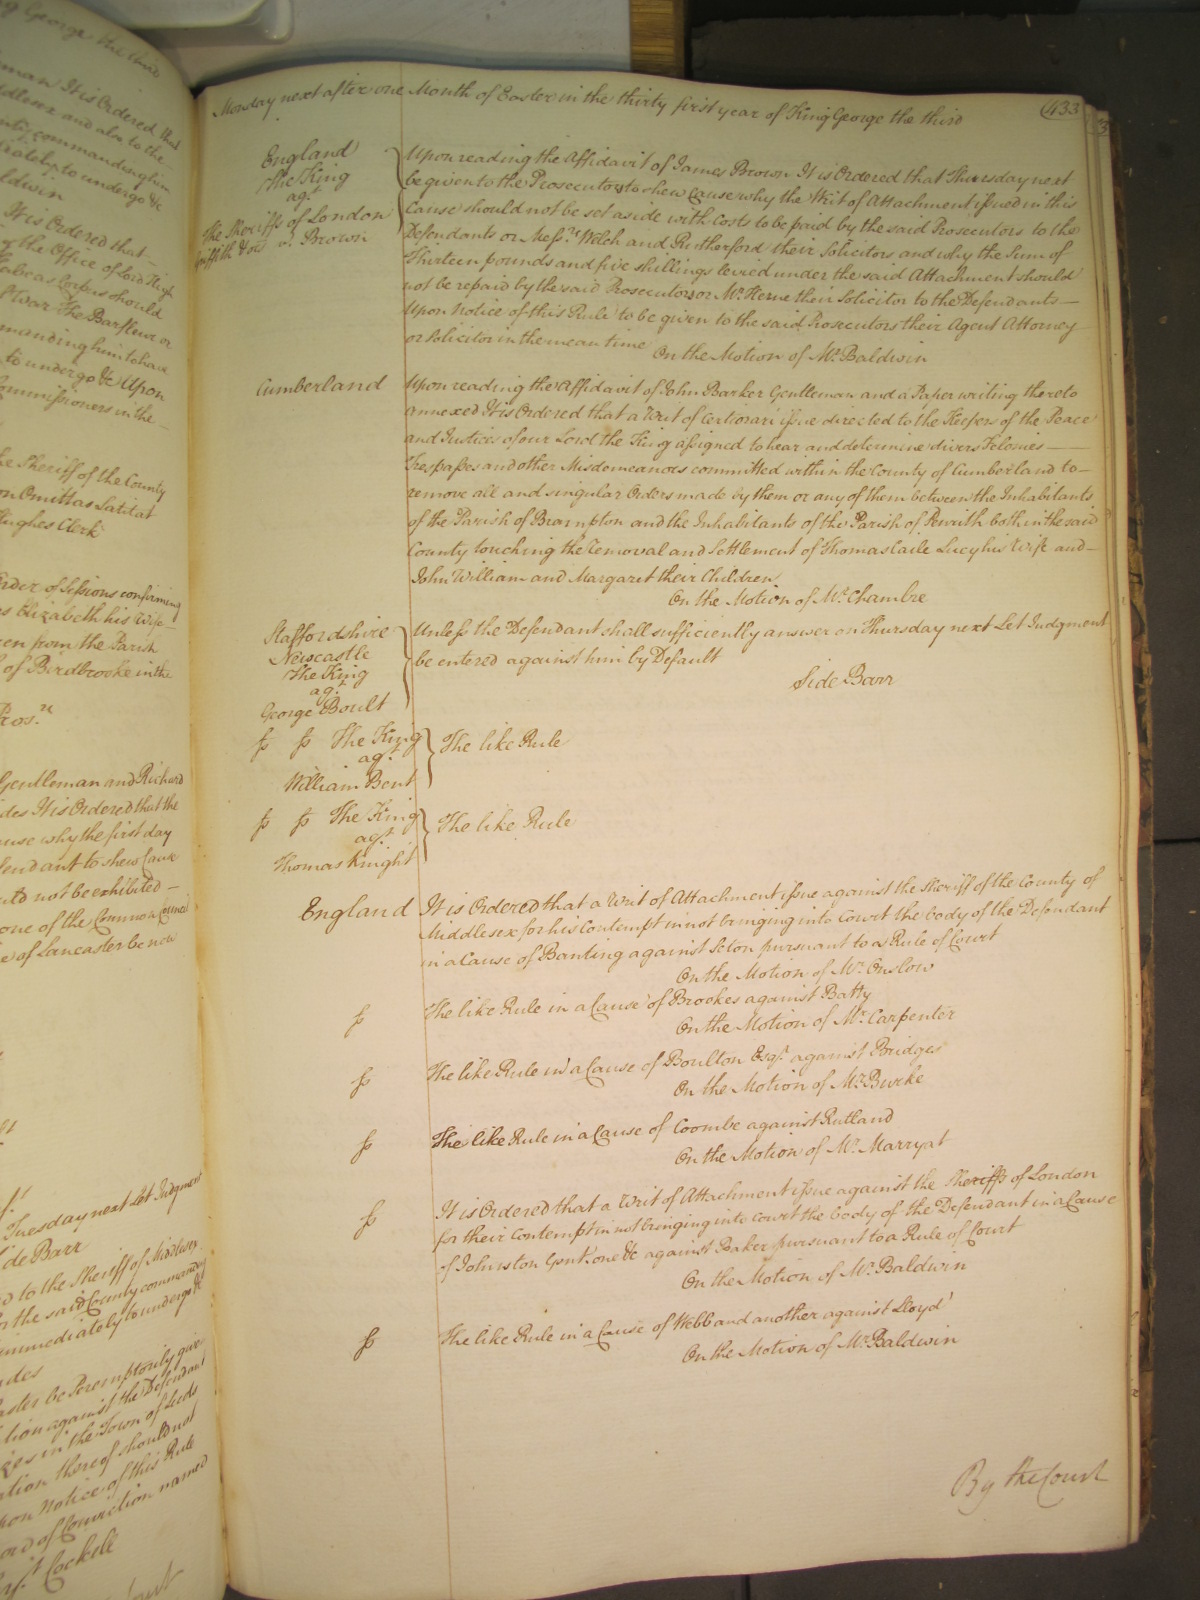 g George the third
man It is Ordered that
ddlesex and also to the
commanding him
diately to undergo &c
ldwin
It is Ordered that
the Office of Lord High
Habeas Corpus should
of War The Barfleur or
manding him to have
to undergo &c Upon
Commissioners in the
he Sheriff of the County
on Omittas Latitat
Hughes Clerk
Order of Sessions confirming
s Elizabeth his Wife
en from the Parish
of Birdbrooke in the
Pros.rs
Gentleman and Richard
des It is Ordered that the
ause why the first day
fendant to shew Cause
uld not be exhibited
one of the Common Council
e of Lancaster be now
Tuesday next Let Judgment
ide Barr
d to the Sheriff of Middlesex
r the said County commanding
immediately to undergo &c
ides
aster be Peremptorily give
tion against the Defendant
ges in the Town of Leeds
ction thereof should not
pon Notice of this Rule
ord of Conviction named
Cockell
Court
Monday next after one Month of Easter in the thirty first year of King George the third
433
England
The King
ag.t
The Sheriffs of London
Griffith & or v. Brown
Upon reading the Affidavit of James Brown It is Ordered that Thursday next
be given to the Prosecutors to shew Cause why the Writ of Attachment issued in this
Cause should not be set aside with Costs to be paid by the said Prosecutors to the
Defendants or Mess.rs Welch and Rutherford their Solicitors and why the Sum of
Thirteen pounds and five shillings levied under the said Attachment should
not be repaid by the said Prosecutors or Mr. Herne their Solicitor to the Defendants
Upon Notice of this Rule to be given to the said Prosecutors their Agent Attorney
or Solicitor in the mean time
On the Motion of Mr. Baldwin
Cumberland
Upon reading the Affidavit of John Barker Gentleman and a Paper writing thereto
annexed It is Ordered that a Writ of Certiorari issue directed to the Keepers of the Peace
and Justices of our Lord the King assigned to hear and determine divers Felonies
Trespasses and other Misdemeanors committed within the County of Cumberland to
remove all and singular Orders made by them or any of them between the Inhabitants
of the Parish of Brampton and the Inhabitants of the Parish of Penrith both in the said
County touching the Removal and Settlement of Thomas Caile Lucy his Wife and
John William and Margaret their Children
On the Motion of Mr. Chambre
Staffordshire
Newcastle
The King
ag.t
George Boult
Unless the Defendant shall sufficiently answer on Thursday next Let Judgment
be entered against him by Default
Side Barr
fs fs The King
ag.t
William Bent
The like Rule
fs fs The King
ag.t
Thomas Knight
The like Rule
England
It is Ordered that a Writ of Attachment issue against the Sheriff of the County of
Middlesex for his Contempt in not bringing into Court the body of the Defendant
in a Cause of Banting against Seton pursuant to a Rule of Court
On the Motion of Mr. Onslow
fs The like Rule in a Cause of Brookes against Batty
On the Motion of Mr. Carpenter
fs The like Rule in a Cause of Boulton Esq.r against Bridges
On the Motion of Mr. Burke
fs The like Rule in a Cause of Coombe against Rutland
On the Motion of Mr. Marryat
fs It is Ordered that a Writ of Attachment issue against the Sheriffs of London
for their Contempt in not bringing into Court the body of the Defendant in a Cause
of Johnston Gent. one &c against Baker pursuant to a Rule of Court
On the Motion of Mr. Baldwin
fs The like Rule in a Cause of Webb and another against Lloyd
On the Motion of Mr. Baldwin
By the Court